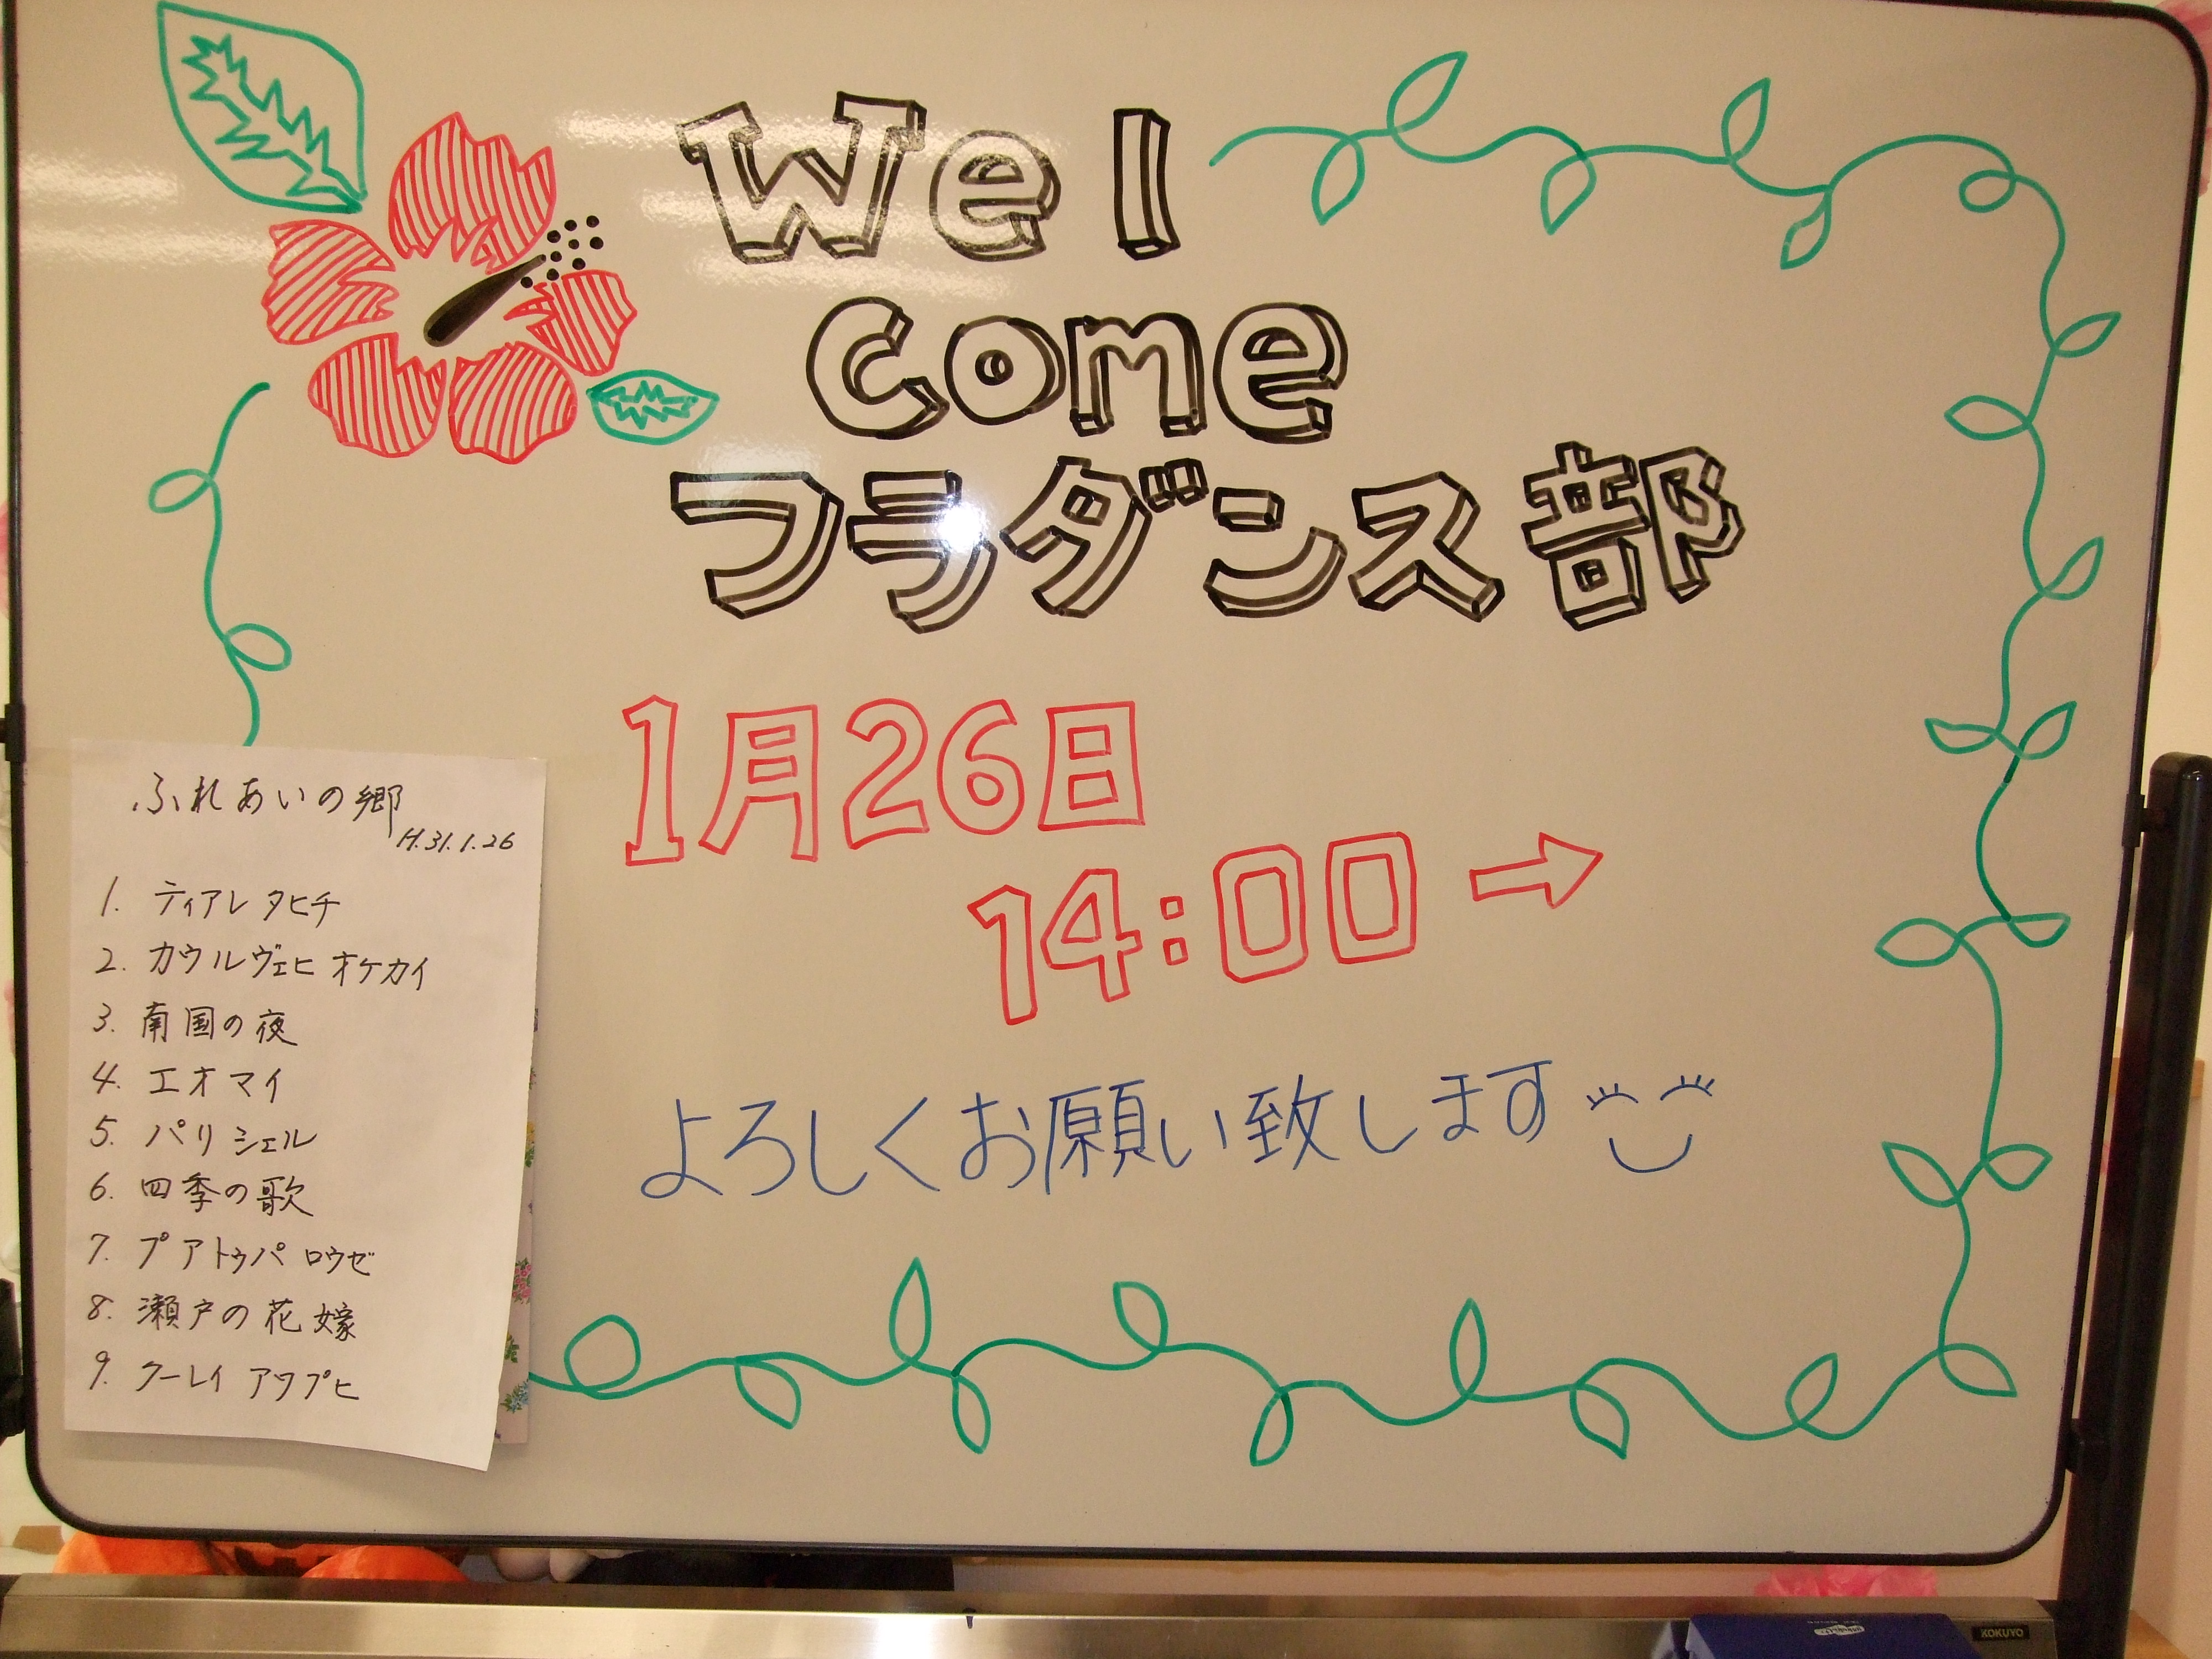 Wel
come
フラダンス部
1月26日
14:00→
よろしくお願い致します
ふれあいの郷
H.31.1.26
1. ティアレ タヒチ
2. カウルヴェヒ オケカイ
3. 南国の夜
4. エオマイ
5. パリシェル
6. 四季の歌
7. プアトゥパ ロウゼ
8. 瀬戸の花嫁
9. クーレイ アワプヒ
KOKUYO